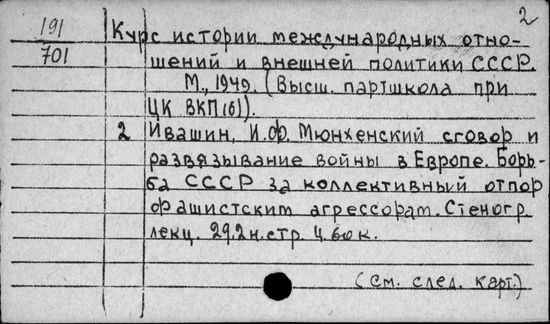 2
191
701
Курс истории международных отно-
шений и внешней политики СССР.
М., 1949. (Высш. партшкола при
ЦК ВКП(б)).
2 Ивашин, И.Ф. Мюнхенский сговор и
развязывание войны в Европе. Борь-
ба СССР за коллективный отпор
фашистским агрессорам. Стеногр.
лекц. 29,2 н. стр. Ц. 60 к.
(См. след. карт.)